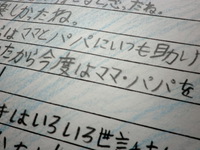 しかったね。
はママとパパにいつも助け
たから今度はママ・パパを
はいろいろ世話